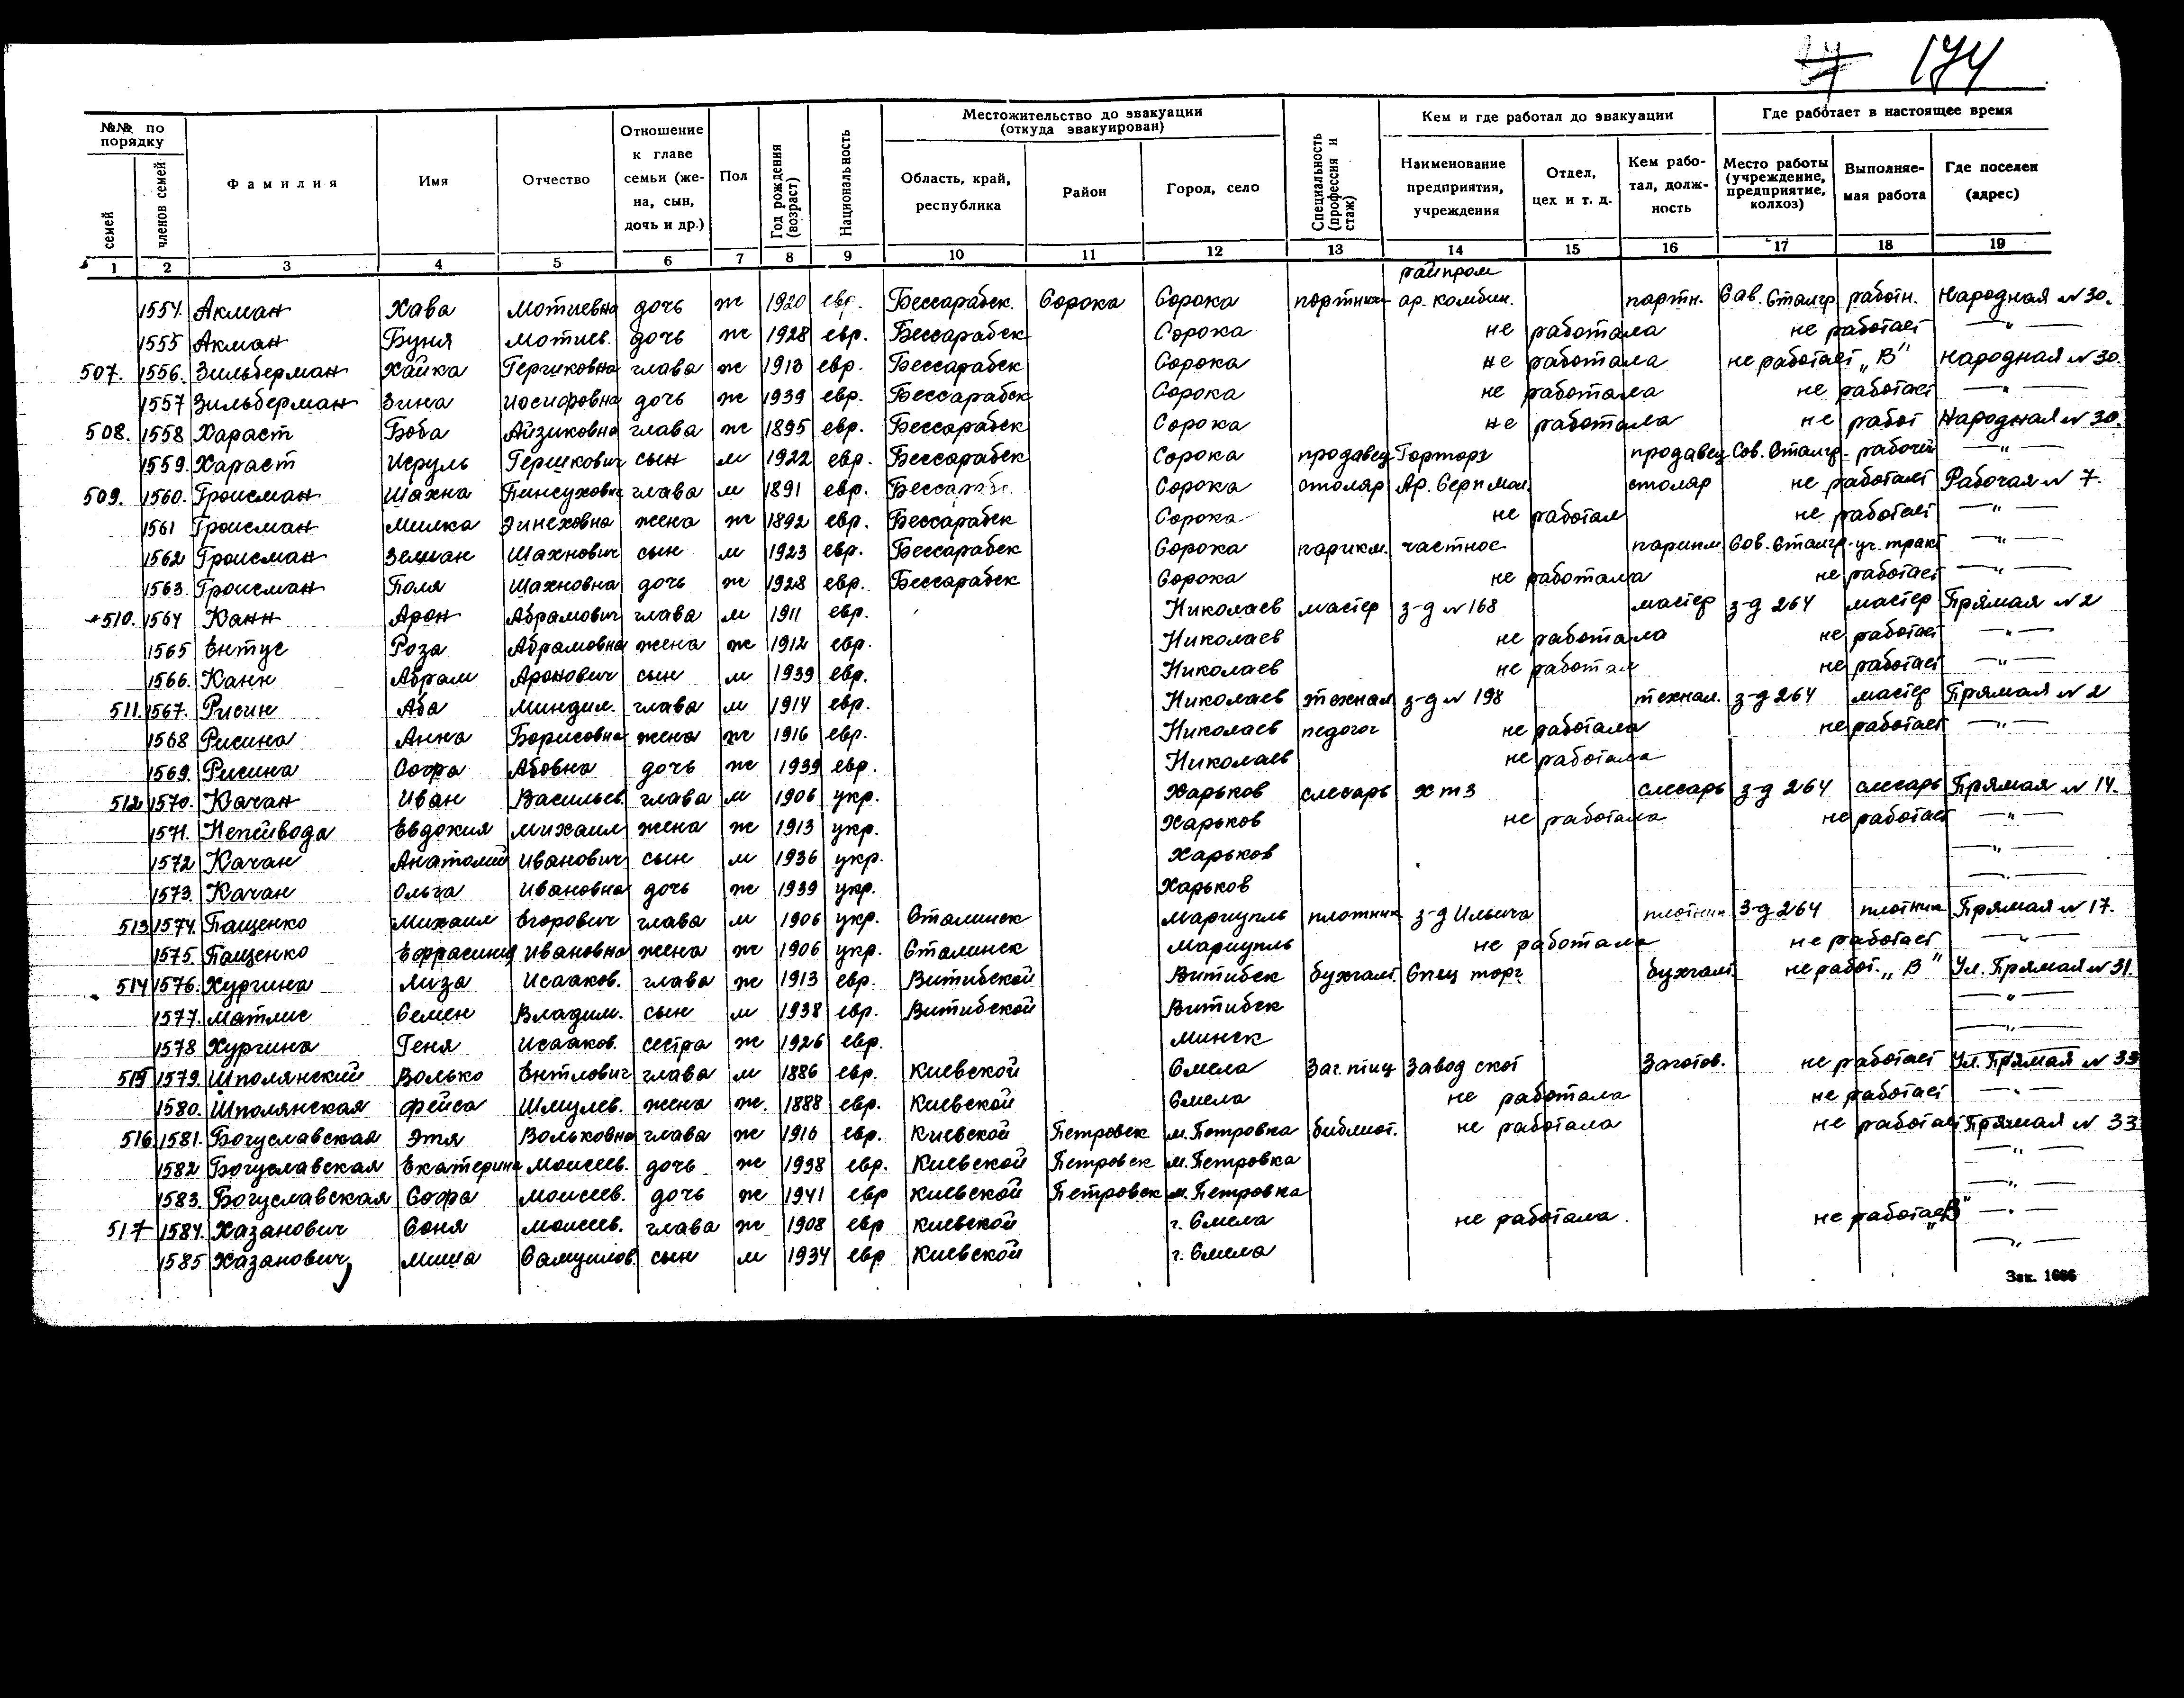 174
№№ по порядку
семей
членов семей
Фамилия
Имя
Отчество
Отношение к главе семьи (жена, сын, дочь и др.)
Пол
Год рождения (возраст)
Национальность
Местожительство до эвакуации (откуда эвакуирован)
Область, край, республика
Район
Город, село
Специальность (профессия и стаж)
Кем и где работал до эвакуации
Наименование предприятия, учреждения
Отдел, цех и т. д.
Кем работал, должность
Где работает в настоящее время
Место работы (учреждение, предприятие, колхоз)
Выполняемая работа
Где поселен (адрес)
1 2 3 4 5 6 7 8 9 10 11 12 13 14 15 16 17 18 19
райпром
1554. Акман Хава Мотиевна дочь ж 1920 евр. Бессарабск. Сорока Сорока портних ар. комбин. портн. Сав. Сталгр. работн. Народная № 30.
1555 Акман Буня Мотиев. дочь ж 1928 евр. Бессарабск Сорока не работала не работает —"—
507. 1556. Зильберман Хайка Гершковна глава ж 1913 евр. Бессарабск Сорока не работала не работает „В" Народная № 30.
1557 Зильберман Зина Иосифовна дочь ж 1939 евр. Бессарабск Сорока не работала не работает —"—
508. 1558 Хараст Боба Айзиковна глава ж 1895 евр. Бессарабск Сорока не работала не работ Народная № 30.
1559. Хараст Исруль Гершкович сын м 1922 евр. Бессарабск Сорока продавец Горторг продавец Сов. Сталгр. рабочий —"—
509. 1560. Гроисман Шахна Пинсухович глава м 1891 евр. Бессарабс. Сорока столяр Ар. Серп Мол. столяр не работает Рабочая № 7.
1561 Гроисман Милка Зинеховна жена ж 1892 евр. Бессарабск Сорока не работал не работает —"—
1562 Гроисман Зелман Шахнович сын м 1923 евр. Бессарабск Сорока парикм. частнос парикм. Сов. Сталгр. уч. тракт —"—
1563. Гроисман Поля Шахновна дочь ж 1928 евр. Бессарабск Сорока не работала не работает —"—
510. 1564 Канн Арон Абрамович глава м 1911 евр. Николаев мастер з-д № 168 мастер з-д 264 мастер Прямая № 2
1565 Ентус Роза Абрамовна жена ж 1912 евр. Николаев не работала не работает —"—
1566. Канн Абрам Аронович сын м 1939 евр. Николаев не работал не работает —"—
511. 1567. Рисин Аба Миндил. глава м 1914 евр. Николаев технал з-д № 198 технал. з-д 264 мастер Прямая № 2
1568 Рисина Анна Борисовна жена ж 1916 евр. Николаев педогог не работала не работает —"—
1569. Рисина Софа Абовна дочь ж 1939 евр. Николаев не работала
512 1570. Качан Иван Васильев. глава м 1906 укр. Харьков слесарь хтз слесарь з-д 264 слесарь Прямая № 14.
1571. Непейвода Евдокия Михаил жена ж 1913 укр. Харьков не работала не работает —"—
1572 Качан Анатолий Иванович сын м 1936 укр. Харьков —"—
1573. Качан Ольга Ивановна дочь ж 1939 укр. Харьков —"—
513 1574. Пащенко Михаил Егорович глава м 1906 укр. Сталинск Мариупль плотник з-д Ильича плотник з-д 264 плотник Прямая № 17.
1575. Пащенко Ефрасиния Ивановна жена ж 1906 укр. Сталинск Мариупль не работала не работает —"—
514 1576. Хургина Лиза Исааков. глава ж 1913 евр. Витибской Витибск бухгалт. Спец торг бухгалт. не работ. „В" Ул. Прямая № 31.
1577. Матлис Семен Владим. сын м 1938 евр. Витибской Витибск —"—
1578 Хургина Геня Исааков. сестра ж 1926 евр. Минск —"—
515 1579. Шполянский Волько Ентлович глава м 1886 евр. Киевской Смела Заг. птиц Завод скот Заготов. не работает Ул. Прямая № 33
1580. Шполянская Фейса Шмулев. жена ж. 1888 евр. Киевской Смела не работала не работает —"—
516 1581. Богуславская Этя Вольковна глава ж 1916 евр. Киевской Петровск м. Петровка библиот. не работала не работает Прямая № 33
1582 Богуславская Екатерина Моисеев. дочь ж 1938 евр. Киевской Петровск м. Петровка —"—
1583. Богуславская Софа Моисеев. дочь ж 1941 евр Киевской Петровск м. Петровка —"—
517 1584. Хазанович Соня Моисеев. глава ж 1908 евр Киевской г. Смела не работала. не работает „В" —"—
1585 Хазанович Миша Самуилов. сын м 1934 евр Киевской г. Смела —"—
Зак. 1686